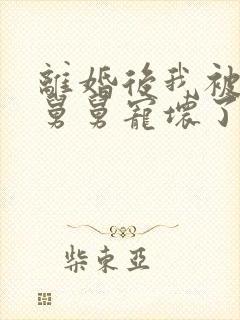 離婚後我被
舅舅寵壞了
柴東亞